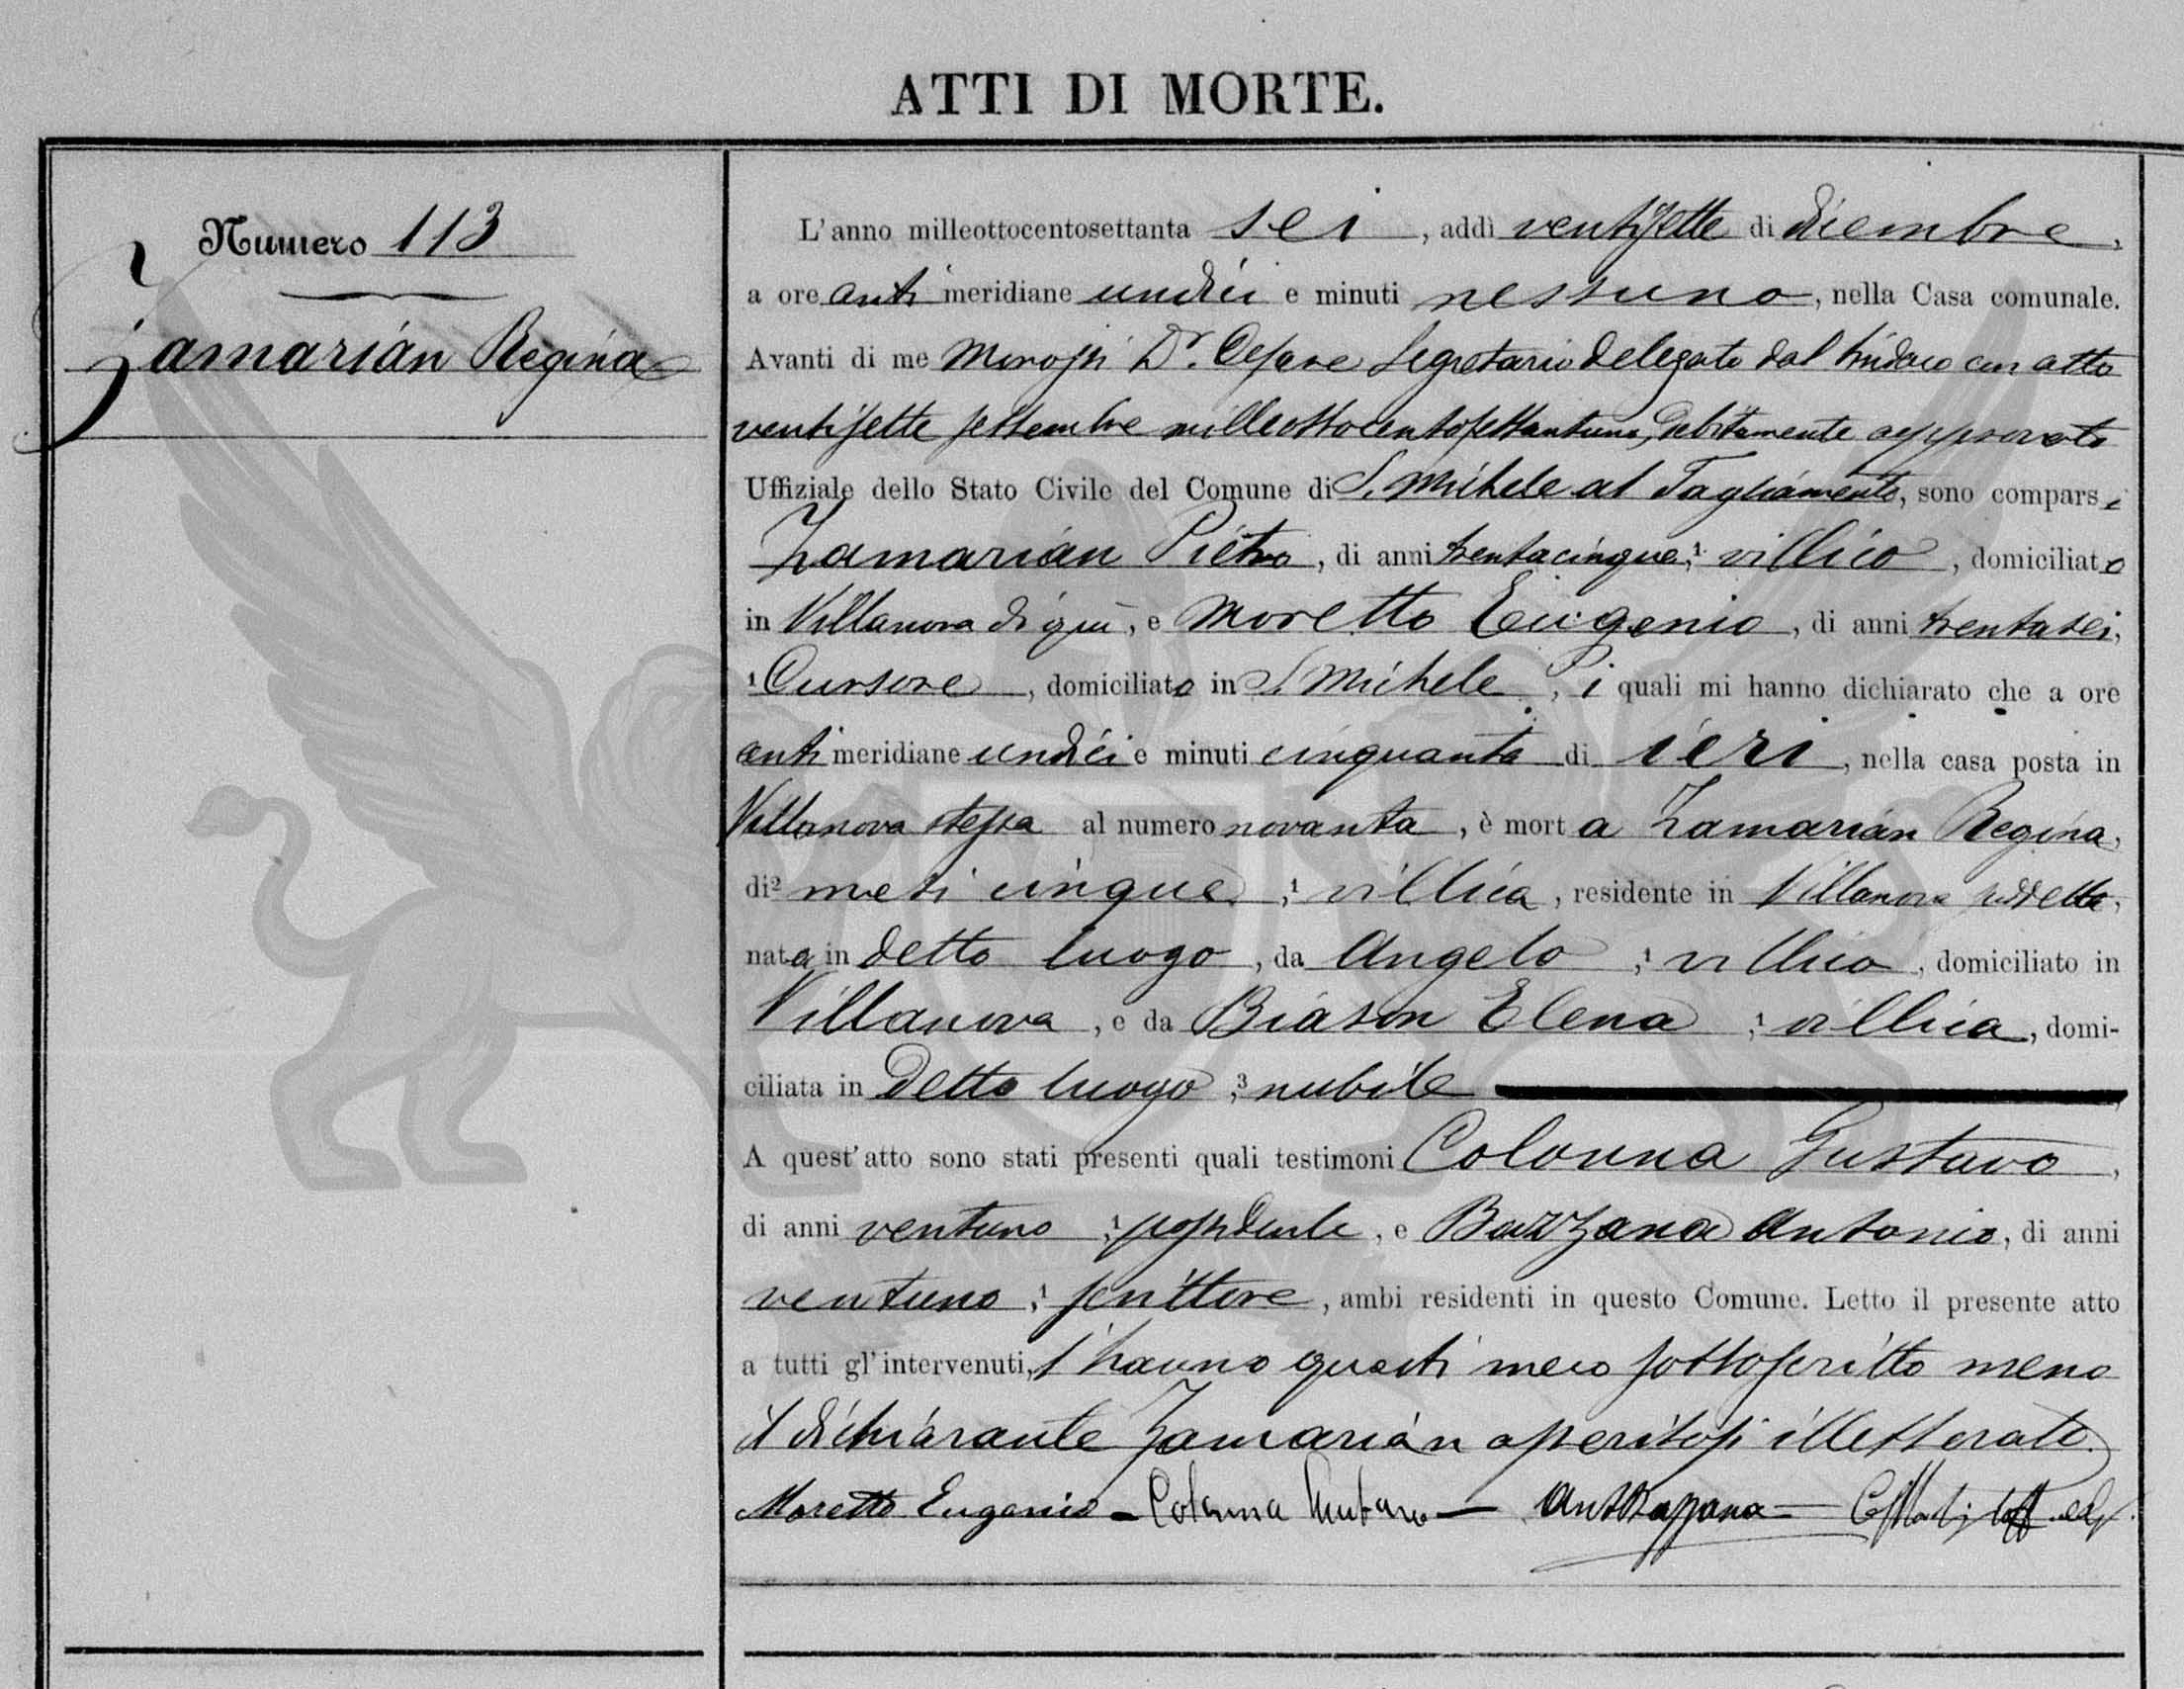 ATTI DI MORTE.
Numero 113
Zamarian Regina
L'anno milleottocentosettanta sei, addì ventisette di dicembre,
a ore anti meridiane undici e minuti nessuno, nella Casa comunale.
Avanti di me Morossi Dr. Cesare Segretario delegato dal Sindaco con atto
ventisette settembre milleottocentosettantuno, debitamente approvato
Uffiziale dello Stato Civile del Comune di S. Michele al Tagliamento, sono comparsi
Zamarian Pietro, di anni trentacinque, 1 villico, domiciliato
in Villanova di qui, e Moretto Eugenio, di anni trentasei,
1 Cursore, domiciliato in S. Michele, i quali mi hanno dichiarato che a ore
anti meridiane undici e minuti cinquanta di ieri, nella casa posta in
Villanova stessa al numero novanta, è morta Zamarian Regina,
di 2 mesi cinque, 1 villica, residente in Villanova suddetta,
nata in detto luogo, da Angelo, 1 villico, domiciliato in
Villanova, e da Biason Elena, 1 villica, domi-
ciliata in detto luogo, 3 nubile
A quest'atto sono stati presenti quali testimoni Colonna Gustavo,
di anni ventuno, 1 possidente, e Bazzana Antonio, di anni
ventuno, 1 scrittore, ambi residenti in questo Comune. Letto il presente atto
a tutti gl'intervenuti, l'hanno questi meco sottoscritto meno
il dichiarante Zamarian asseritosi illetterato.
Moretto Eugenio - Colonna Gustavo - Ant Bazzana -